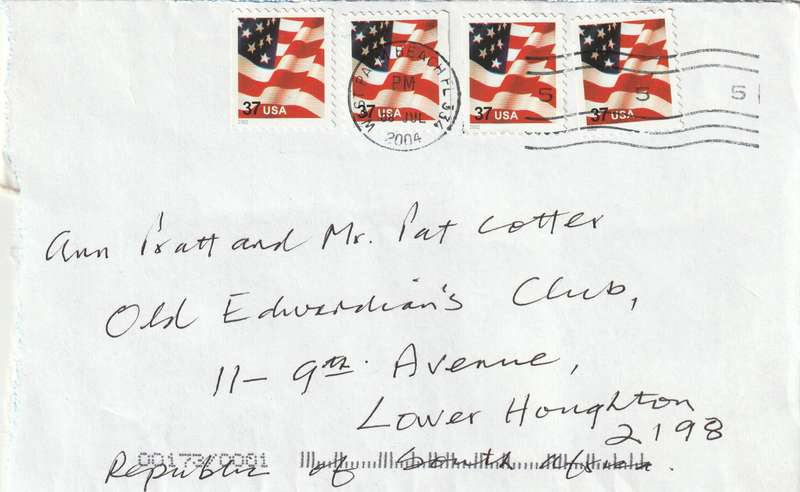 37 USA
37 USA
37 USA
37 USA
WEST PALM BEACH FL 334
PM
JUL
2004
5 5 5
Ann Pratt and Mr. Pat Cotter
Old Edwardian's Club,
11 - 9th. Avenue,
Lower Houghton
2198
Republic of South Africa.